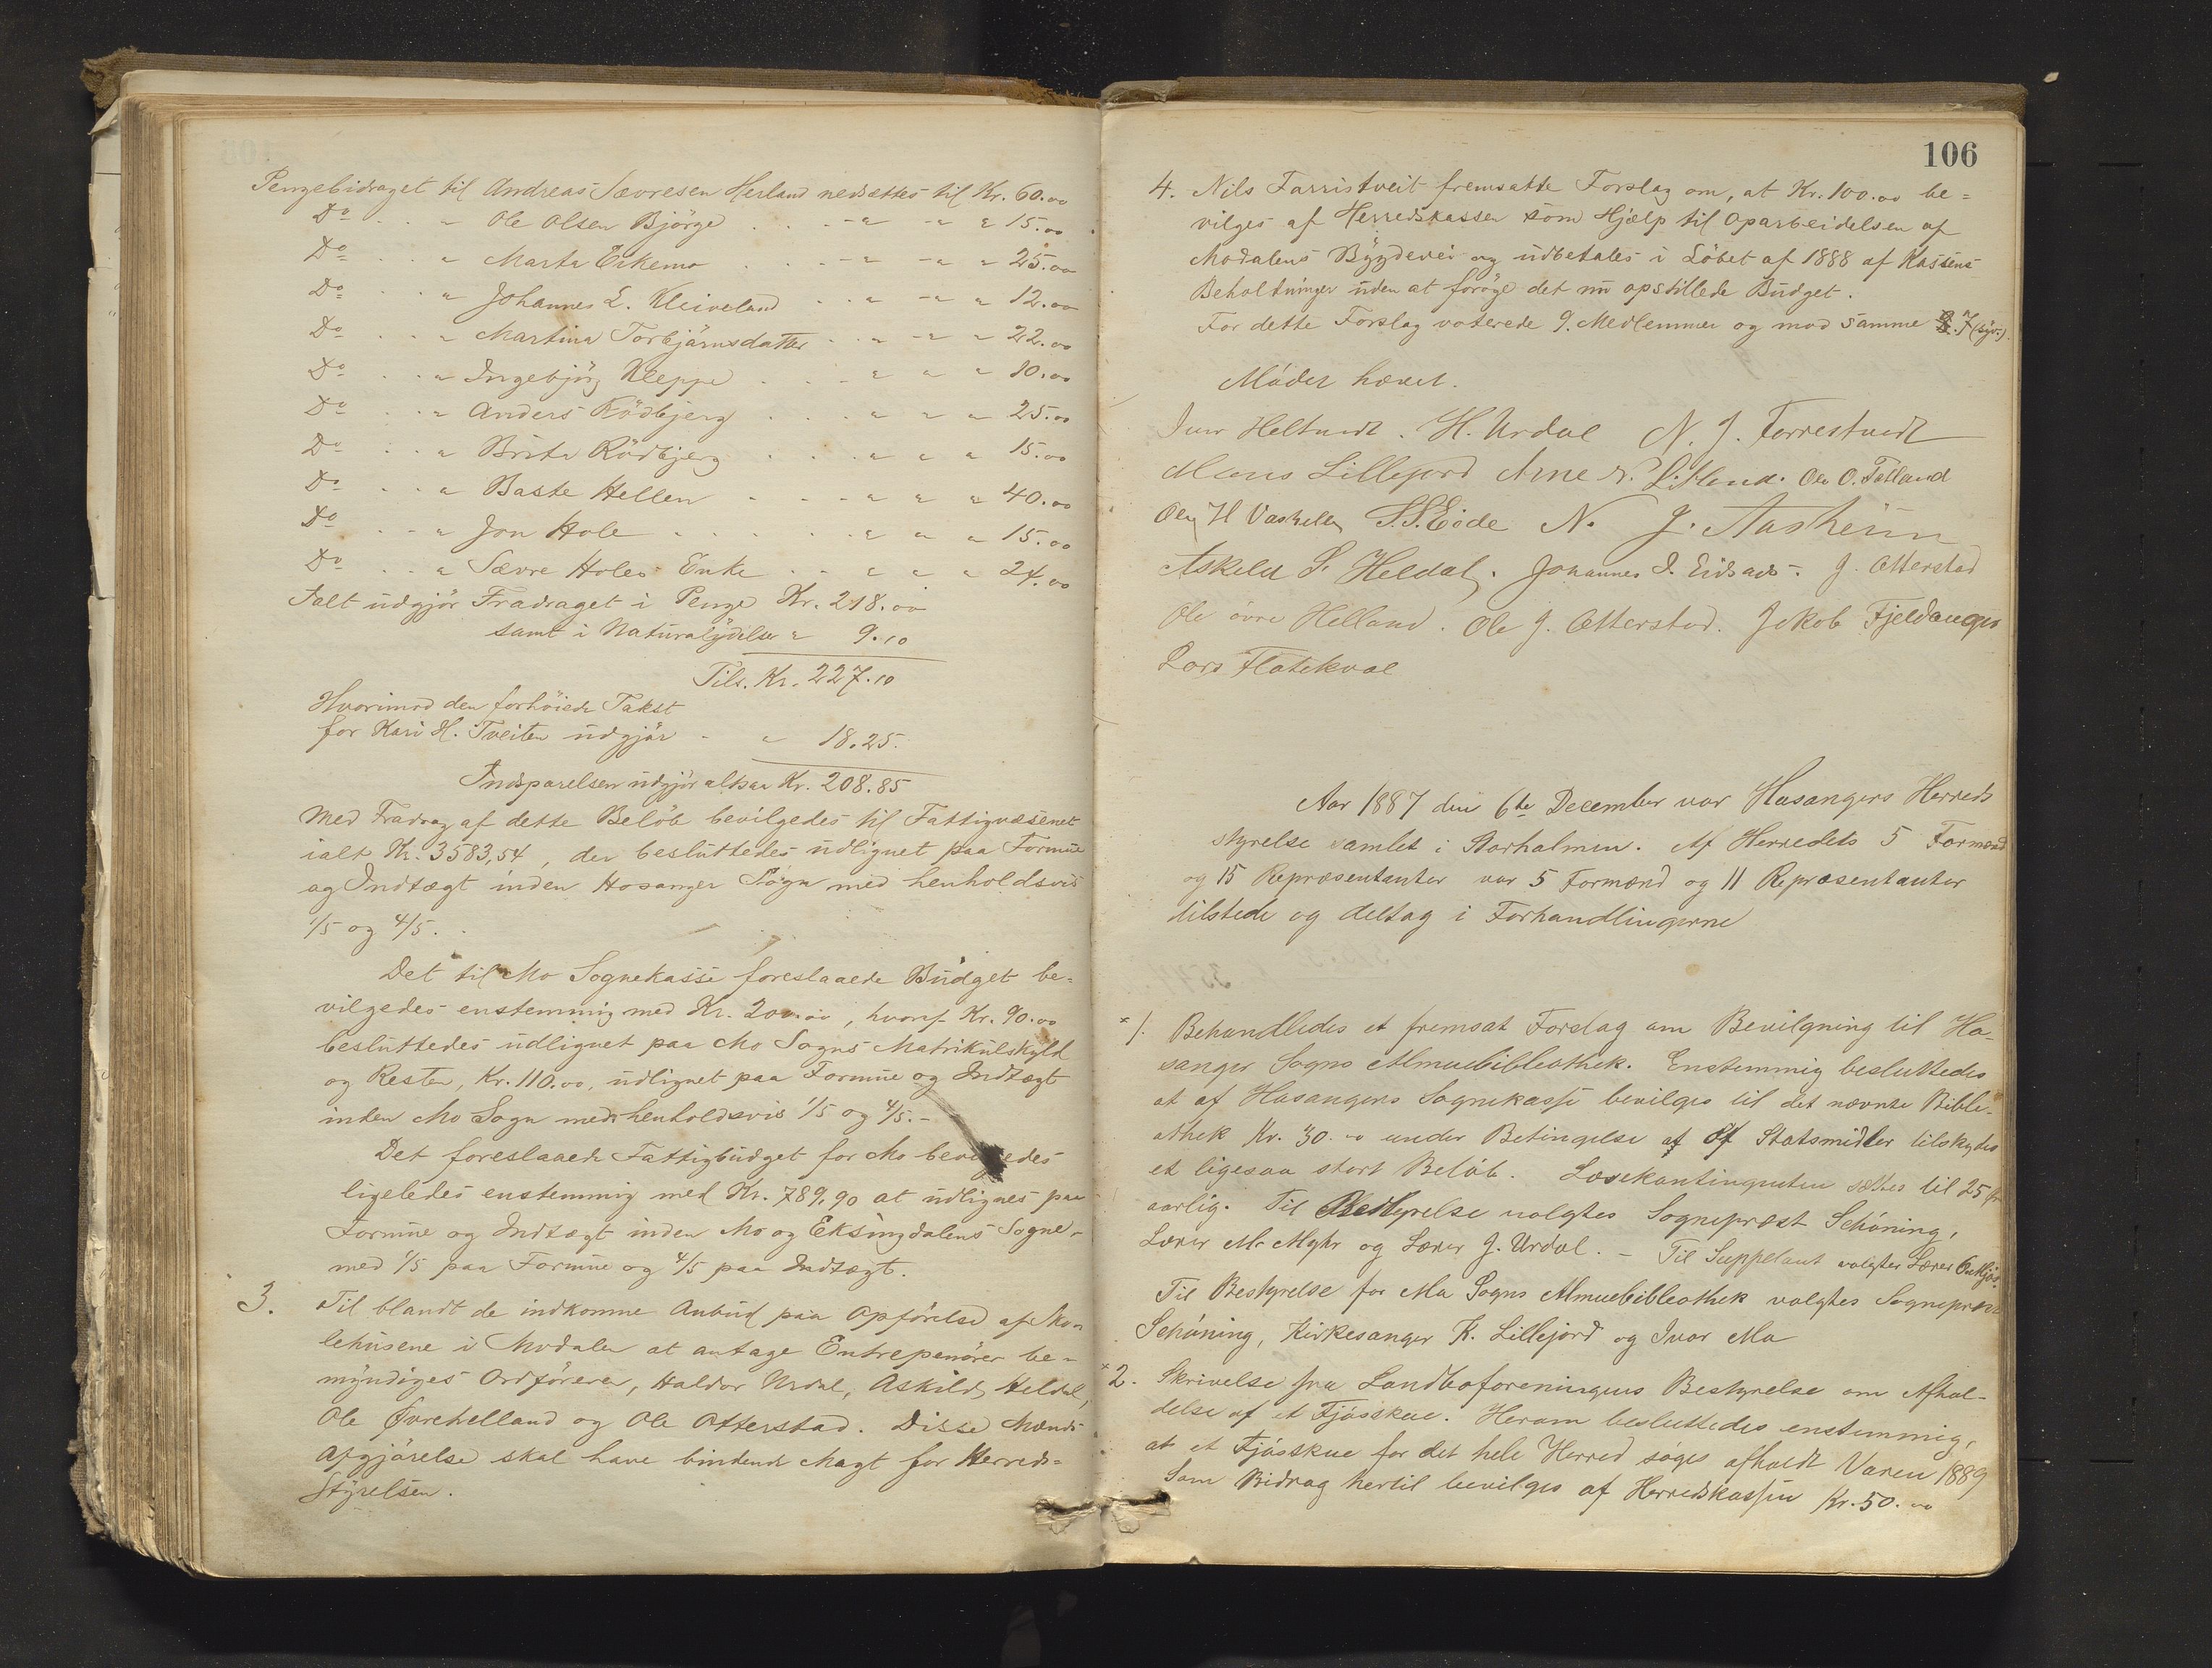 Pengebidraget til Andreas Sævresen Herland nedsættes til Kr. 60.00
Do . . " Ole Olsen Bjørge . . . " " " 15.00
Do . . " Marta Eikemo . . . " " " 25.00
Do . . " Johannes L. Kleiveland . . " " " 12.00
Do . . " Martina Torbjørnsdatter . . " " " 22.00
Do . . " Ingebjørg Kleppe . . . " " " 10.00
Do . . " Anders Rödbjerg . . . " " " 25.00
Do . . " Brita Rödbjerg . . . " " " 15.00
Do . . " Baste Hellen . . . " " " 40.00
Do . . " Jon Hole . . . . . " " " 15.00
Do . . " Sævre Holes Enke . . " " " 24.00
Ialt udgjör Fradraget i Penge Kr. 218.00
samt i Naturalydelser " 9.10
Tils. Kr. 227.10
Hvorimod den forhöiede Takst
for Kari H. Tveiten udgjör - " 18.25.
Indsparelsen udgjör altsaa Kr. 208.85
Med Fradrag af dette Belöb bevilgedes til Fattigvæsenet
ialt Kr. 3583,54, der besluttedes udlignet paa Formue
og Indtægt inden Hosanger Sogn med henholdsvis
1/5 og 4/5.
Det til Mo Sognekasse foreslaaede Budget be-
vilgedes enstemmig med Kr. 200.00, hvoraf Kr. 90.00
besluttedes udlignet paa Mo Sogns Matrikulskyld
og Resten, Kr. 110.00, udlignet paa Formue og Indtægt
inden Mo Sogn med henholdsvis 1/5 og 4/5.-
Det foreslaaede Fattigbudget for Mo bevilgedes
ligeledes enstemmig med Kr. 789,90 at udlignes paa
Formue og Indtægt inden Mo og Eksingdalens Sogne
med 1/5 paa Formue og 4/5 paa Indtægt.
3. Til blandt de indkomne Anbud paa Opförelse af Sko-
lehusene i Modalen at antage Entrepenörer be-
myndiges Ordföreren, Haldor Urdal, Askild Heldal,
Ole Øvrehelland og Ole Otterstad. Disse Mænds
Afgjörelse skal have bindende Magt for Herreds-
Styrelsen.
106
4. Nils Farristveit fremsatte Forslag om, at Kr. 100.00 be-
vilges af Herredskassen som Hjælp til Oparbeidelsen af
Modalens Bygdevei og udbetales i Löbet af 1888 af Kassens
Beholdninger uden at foröge det nu opstillede Budget.
For dette Forslag voterede 9. Medlemmer og mod samme 7 (syv).
Mödet hævet.
Iver Heltvedt. H. Urdal N. J. Forrestvedt
Mons Lillejord Arne N. Litland. Ole O. Tolland
Ole H Vashellen S. S. Eide N. J. Aasheim
Askeld S. Heldal. Johannes I. Eidsaas. J. Otterstad
Ole övre Helland. Ole J. Otterstad. Jakob Fjeldanger
Lars Flatekval
Aar 1887 den 6te December var Hosangers Herreds
styrelse samlet i Storholmen. Af Herredets 5 Formænd
og 15 Repræsentanter var 5 Formænd og 11 Repræsentanter
tilstede og deltog i Forhandlingerne
1. Behandledes et fremsat Forslag om Bevilgning til Ho-
sanger Sogns Almuebibliothek. Enstemmig besluttedes
at af Hosangers Sognekasse bevilges til det nævnte Bibli-
othek Kr. 30.00 under Betingelse af at Statsmidler tilskydes
et ligesaa stort Belöb. Læsekontingenten sættes til 25 öre
aarlig. Til Bestyrelse valgtes Sognepræst Schöning,
Lærer M. Myhr og Lærer J. Urdal. - Til Suppleant valgtes Lærer
Til Bestyrelse for Mo Sogns Almuebibliothek valgtes Sognepræst
Schöning, Kirkesanger K. Lillejord og Ivar Mo
2. Skrivelse fra Landboforeningens Bestyrelse om Afhol-
delse af et Fjösskue. Herom besluttedes enstemmig,
at et Fjösskue for det hele Herred söges afholdt Vaaren 1889
Som Bidrag hertil bevilges af Herredskassen Kr. 50.00